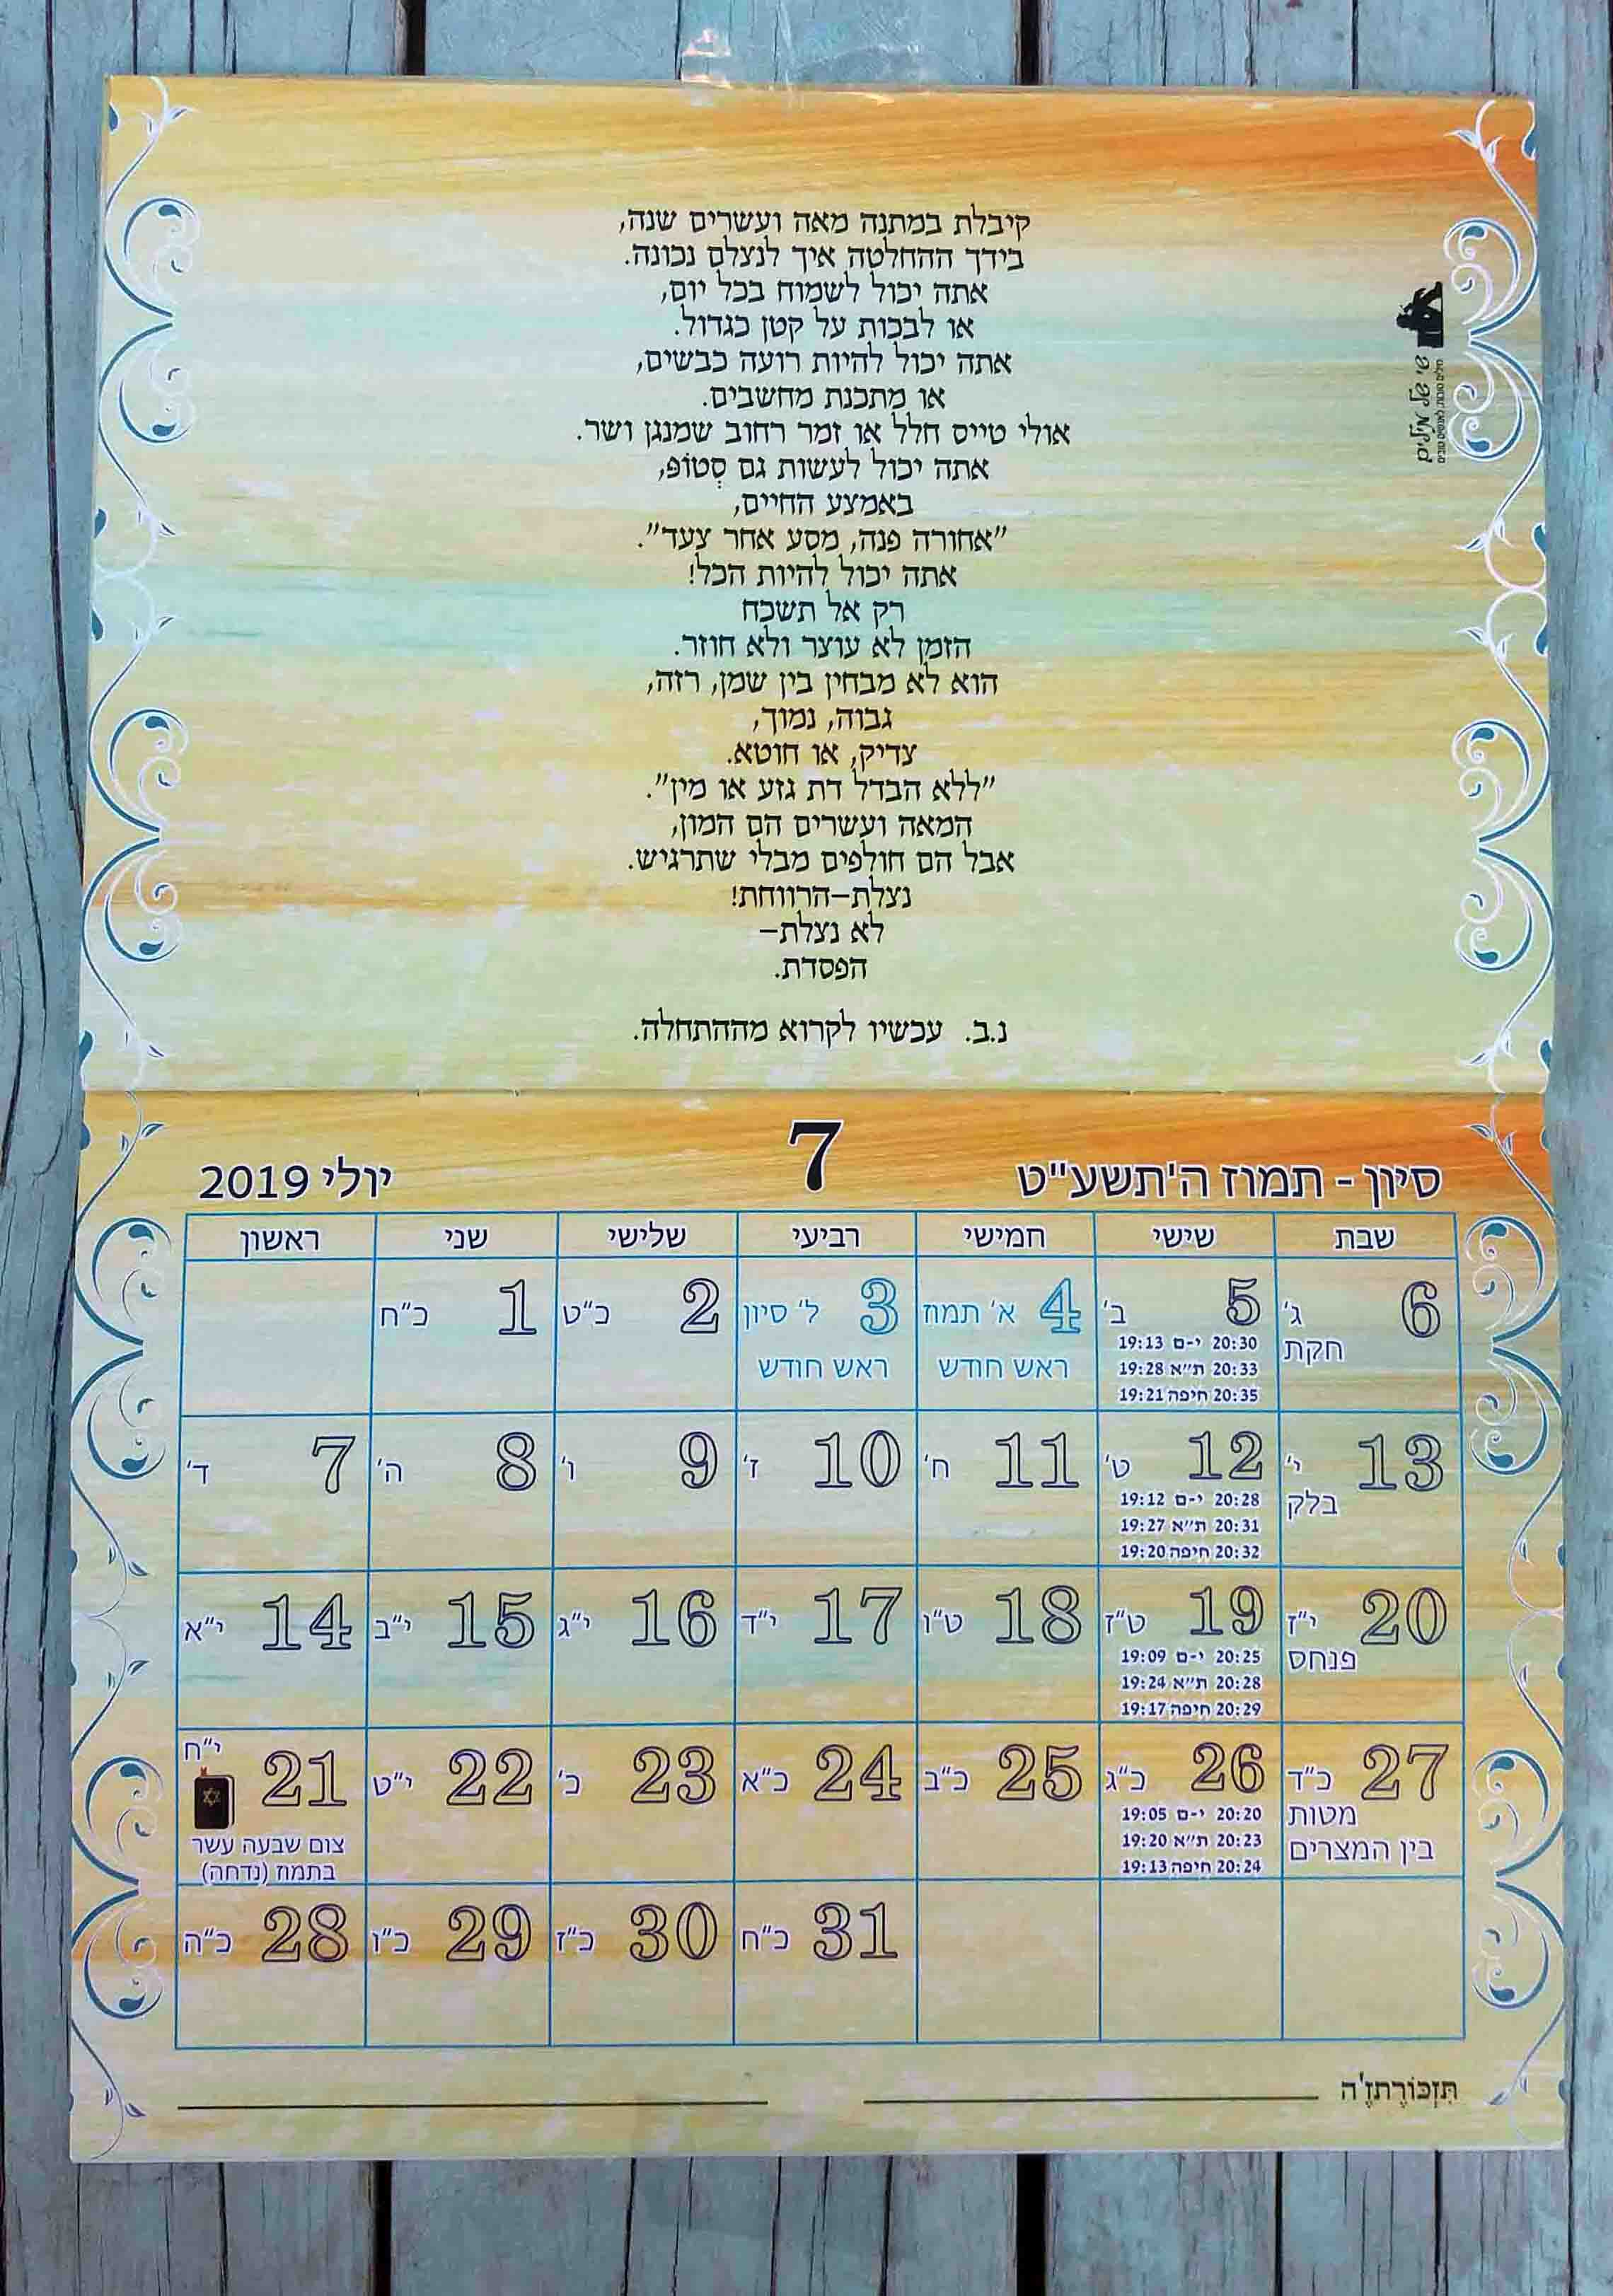 קיבלת במתנה מאה ועשרים שנה,
בידך ההחלטה איך לנצלם נכונה.
אתה יכול לשמוח בכל יום,
או לבכות על קטן כגדול.
אתה יכול להיות רועה כבשים,
או מתכנת מחשבים.
אולי טייס חלל או זמר רחוב שמנגן ושר.
אתה יכול לעשות גם סְטוֹפּ,
באמצע החיים,
"אחורה פנה, מסע אחר צעד".
אתה יכול להיות הכל!
רק אל תשכח
הזמן לא עוצר ולא חוזר.
הוא לא מבחין בין שמן, רזה,
גבוה, נמוך,
צדיק, או חוטא.
"ללא הבדל דת גזע או מין".
המאה ועשרים הם המון,
אבל הם חולפים מבלי שתרגיש.
נצלת–הרווחת!
לא נצלת–
הפסדת.
נ.ב. עכשיו לקרוא מההתחלה.
שי של מילים
מילים טובות לאנשים טובים
סיון - תמוז ה'תשע"ט 7 יולי 2019
ראשון שני שלישי רביעי חמישי שישי שבת
1 כ"ח 2 כ"ט 3 ל' סיון 4 א' תמוז 5 ב' 6 ג'
ראש חודש ראש חודש חקת
19:13 י-ם 20:30
19:28 ת"א 20:33
19:21 חיפה 20:35
7 ד' 8 ה' 9 ו' 10 ז' 11 ח' 12 ט' 13 י'
בלק
19:12 י-ם 20:28
19:27 ת"א 20:31
19:20 חיפה 20:32
14 י"א 15 י"ב 16 י"ג 17 י"ד 18 ט"ו 19 ט"ז 20 י"ז
פנחס
19:09 י-ם 20:25
19:24 ת"א 20:28
19:17 חיפה 20:29
21 י"ח 22 י"ט 23 כ' 24 כ"א 25 כ"ב 26 כ"ג 27 כ"ד
צום שבעה עשר
בתמוז (נדחה)
19:05 י-ם 20:20
19:20 ת"א 20:23
19:13 חיפה 20:24
מטות
בין המצרים
28 כ"ה 29 כ"ו 30 כ"ז 31 כ"ח
תִּזְכּוֹרֶתזֶ'ה